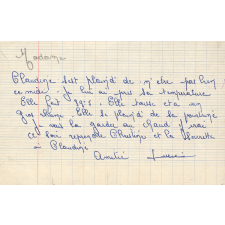 Madame
Claudine s'est plaind de n'etre pas bien
ce midi. je lui ai pris sa température
Elle fait 99°5. Elle tousse et a un
gros rhume. Elle se plaind de sa poitrine
je vais la garder au chaud j'irai
ce soir reprendre Christine et la
à Claudine
Amitié